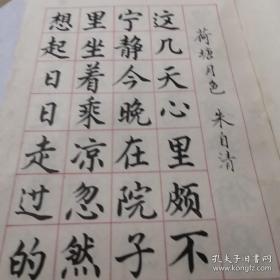 荷塘月色 朱自清
这几天心里颇不
宁静今晚在院子
里坐着乘凉忽然
想起日日走过的
孔夫子旧书网